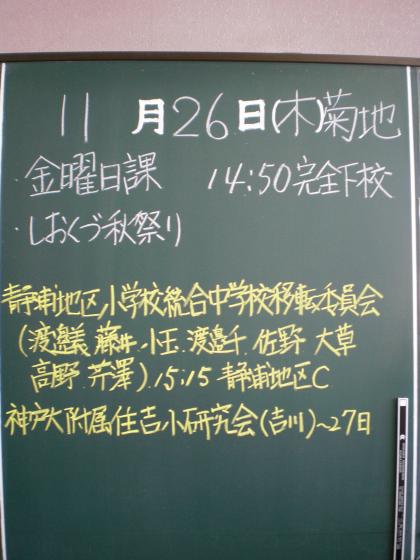 11月26日(木)菊地
・金曜日課 14:50完全下校
・しおくづ秋祭り
静浦地区小学校統合中学校移転委員会
(渡邉義 藤井 小玉 渡邉千 佐野 大草
高野 芹澤) 15:15 静浦地区C
神戸大附属住吉小研究会(吉川)~27日